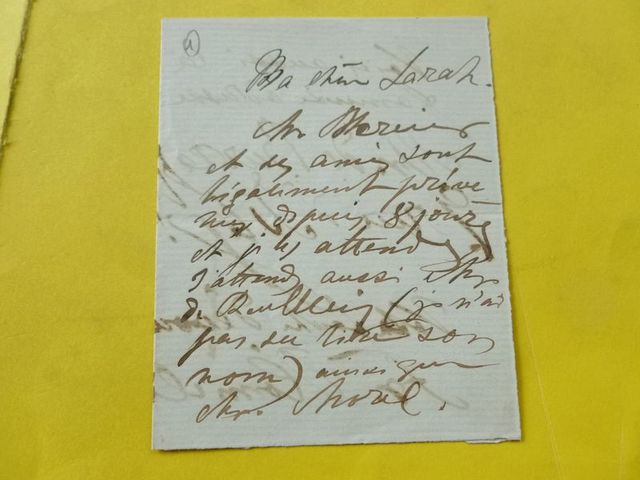 1
Ma chère Sarah.
Mr
et ses amis sont
légalement préve
nus, depuis 8 jours
et je les attends
J'attends aussi Mr
de (je n'ai
pas su lire son
nom) ainsi que
Mr. Morel.